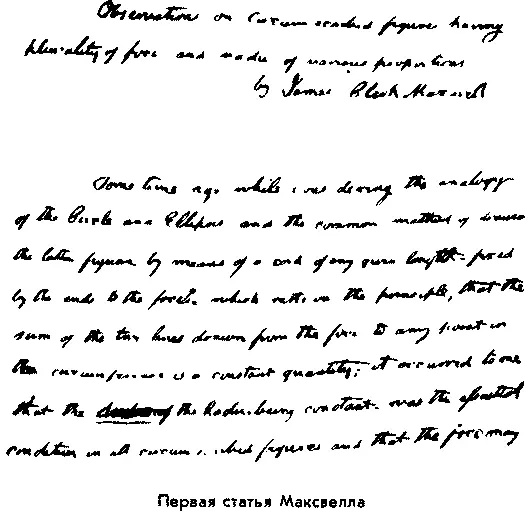 Observations on Circumscribed figures having
plurality of foci and radii of various proportions
by James Clerk Maxwell
Some time ago while I was the analogy
of the Circle and Ellipse and the common method of
the latter figure by means of a cord of any given length fixed
by the ends to the foci which rests on the principle, that the
sum of the two lines drawn from the foci to any point in
the circumference is a constant quantity; it occurred to me
that the the Radii being constant was the
condition in all circumscribed figures and that the foci may
Первая статья Максвелла